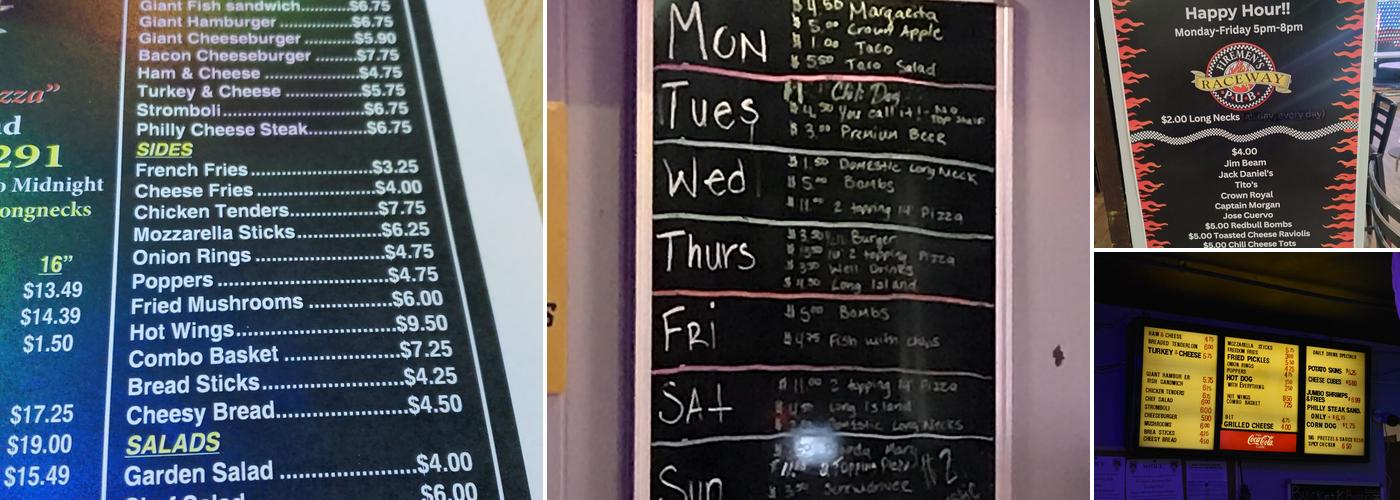 Giant Fish sandwich.....$6.75
Giant Hamburger ..............$6.75
Giant Cheeseburger ..........$5.90
Bacon Cheeseburger ........$7.75
Ham & Cheese ..................$4.75
Turkey & Cheese ...............$5.75
Stromboli............................$6.75
Philly Cheese Steak...........$6.75
SIDES
French Fries .......................$3.25
Cheese Fries ......................$4.00
Chicken Tenders.................$7.75
Mozzarella Sticks................$6.25
Onion Rings ........................$4.75
Poppers ...............................$4.75
Fried Mushrooms ................$6.00
Hot Wings.............................$9.50
Combo Basket .....................$7.25
Bread Sticks..........................$4.25
Cheesy Bread........................$4.50
SALADS
Garden Salad ........................$4.00
$6.00
291
Midnight
ongnecks
16”
$13.49
$14.39
$1.50
$17.25
$19.00
$15.49
MON
$4.50 Margarita
$5.00 Crown Apple
$1.00 Taco
$5.50 Taco Salad
Tues
Chili Dog
$4.50 You call it!- No Top Shelf
$3.00 Premium Beer
Wed
$1.50 Domestic Long Neck
$5.00 Bombs
$11.00 2 topping 14" Pizza
Thurs
$3.50 Burger
2 topping Pizza
$3.50 Well Drinks
$4.50 Long Island
FRI
$5.00 Bombs
$4.75 Fish with chips
SAt
$11.00 2 topping 14" Pizza
Long Island
Domestic Long Necks
Sun
2 Topping Pizza
Screwdriver
Happy Hour!!
Monday-Friday 5pm-8pm
FIREMEN'S
RACEWAY
PUB
$2.00 Long Necks (all day, every day)
$4.00
Jim Beam
Jack Daniel's
Tito's
Crown Royal
Captain Morgan
Jose Cuervo
$5.00 Redbull Bombs
$5.00 Toasted Cheese Raviolis
$5.00 Chili Cheese Tots
HAM & CHEESE 4.75
BREADED TENDERLOIN 6.00
TURKEY & CHEESE 5.75
GIANT HAMBURGER 5.75
FISH SANDWICH
CHICKEN TENDERS
CHEF SALAD
STROMBOLI 6.00
CHEESEBURGER
MUSHROOMS 6.00
BREAD STICKS 4.25
CHEESY BREAD 4.50
MOZZARELLA STICKS
FREEDOM FRIES
FRIED PICKLES
ONION RINGS
POPPERS
HOT DOG
WITH EVERYTHING
HOT WINGS 9.50
COMBO BASKET 7.25
BLT
GRILLED CHEESE 4.00
Coca-Cola
DAILY DRINK SPECIALS
POTATO SKINS
CHEESE CUBES
JUMBO SHRIMPS
&FRIES
PHILLY STEAK SAND.
ONLY
CORN DOG $1.75
SPICY CHICKEN 6.50